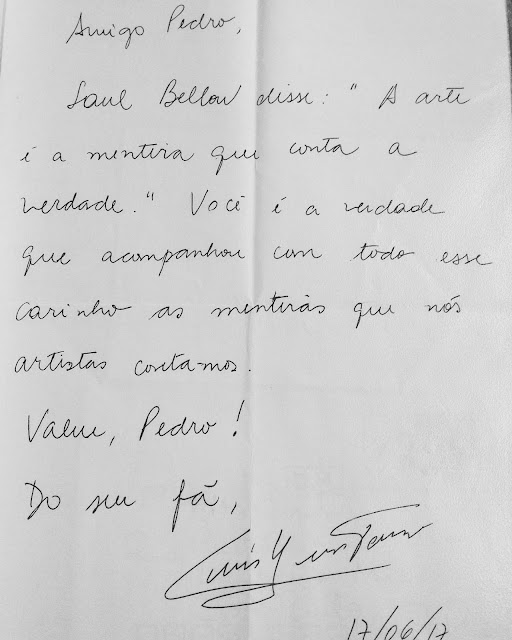 Amigo Pedro,
Saul Bellow disse: " A arte
é a mentira que conta a
verdade." Você é a verdade
que acompanhou com todo esse
carinho as mentiras que nós
artistas contamos.
Valeu, Pedro!
Do seu fã,
17/06/17